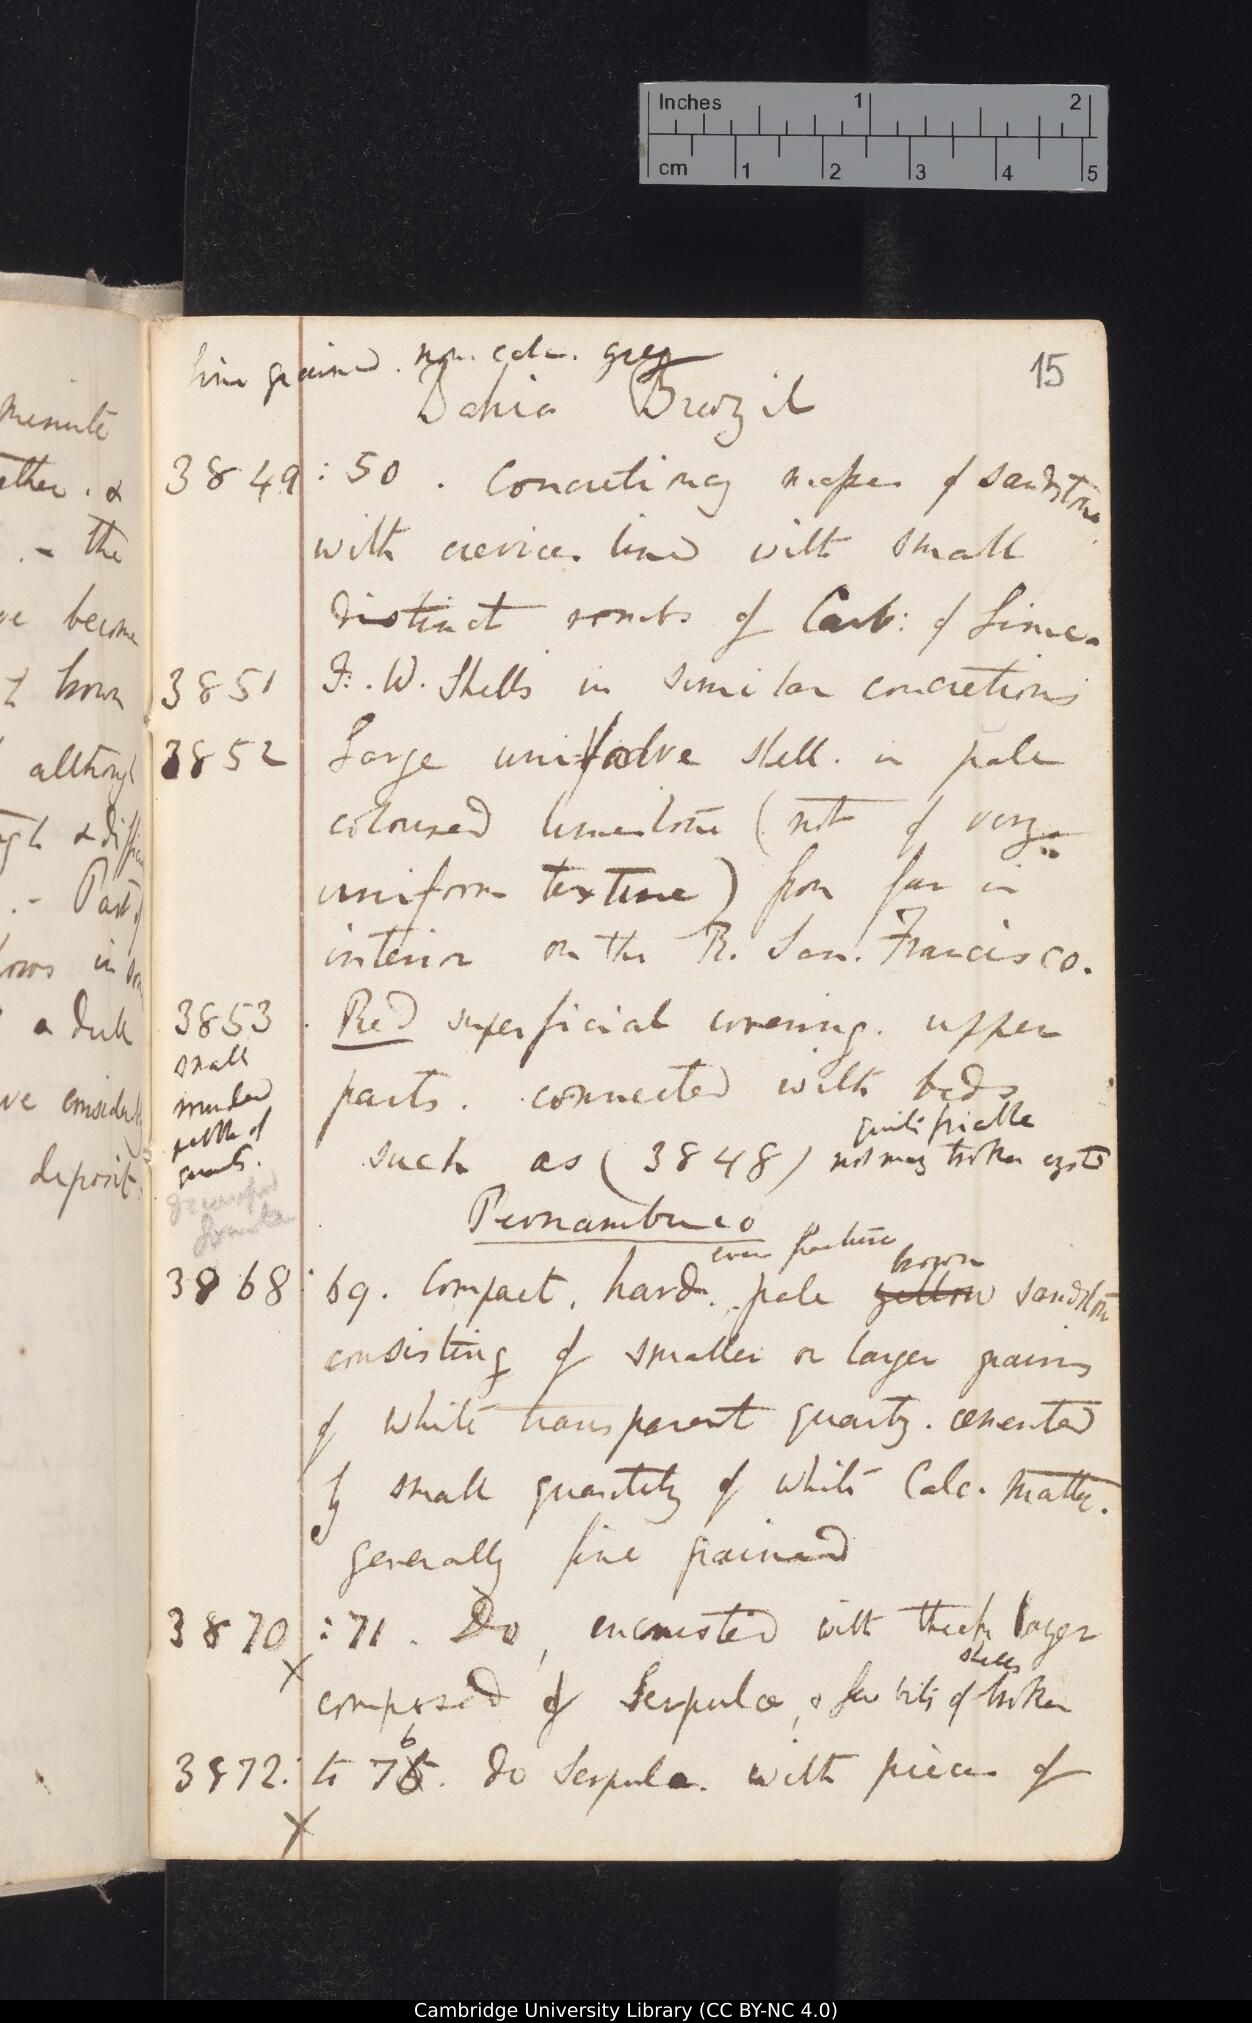 Inches 1 2
cm 1 2 3 4 5
15
fine grained. non. calc. grey
Bahia Brazil
3849 : 50. Concretionary masses of sandstone
with crevices lined with small
distinct rombs of Carb: of Lime.
3851 F. W. Shells in similar concretions
3852 Large univalve shell. in pale
coloured limestone (not of very
uniform texture) from far in
interior on the R. San. Francisco.
3853 . Red superficial covering. upper
small
rounded
pebble of
quartz.
parts. connected with beds
quite friable
such as (3848) not many broken
Pernambuco
even fracture
brown
3868 : 69. Compact, hard. pale yellow sandstone
consisting of smaller or larger grains
of white transparent quartz. cemented
by small quantity of white Calc. matter.
generally fine grained
3870 : 71. Do, encrusted with thick layer
x
shells
composed of Serpulæ, & few bits of broken
6
3872: to 75. do Serpula. with pieces of
x
minute
ether. &
. - the
ve become
t brown
although
ugh & diffi
.- Part of
lows in
a dull
deposit:
Cambridge University Library (CC BY-NC 4.0)